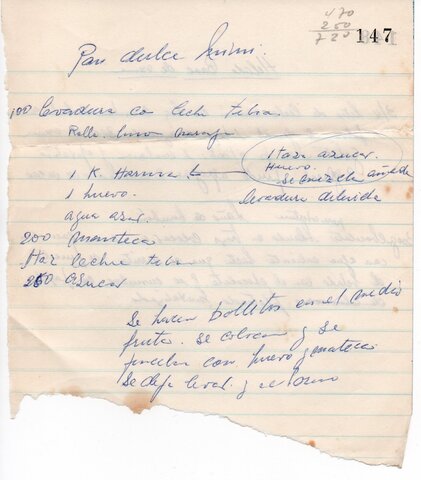 470
250
720
147
Pan dulce Mimi
100 levadura con leche tibia.
Rall. limon naranja
1 K. Harina
1 taza azucar.
Huevo
se mezcla añada
levadura debida
1 huevo.
agua azar.
200 manteca
1 taz leche tibia
250 azucar
Se hacen bollitos en el medio
fruta. se colocan y se
pincelan con huevo y manteca
se deja levar y al horno